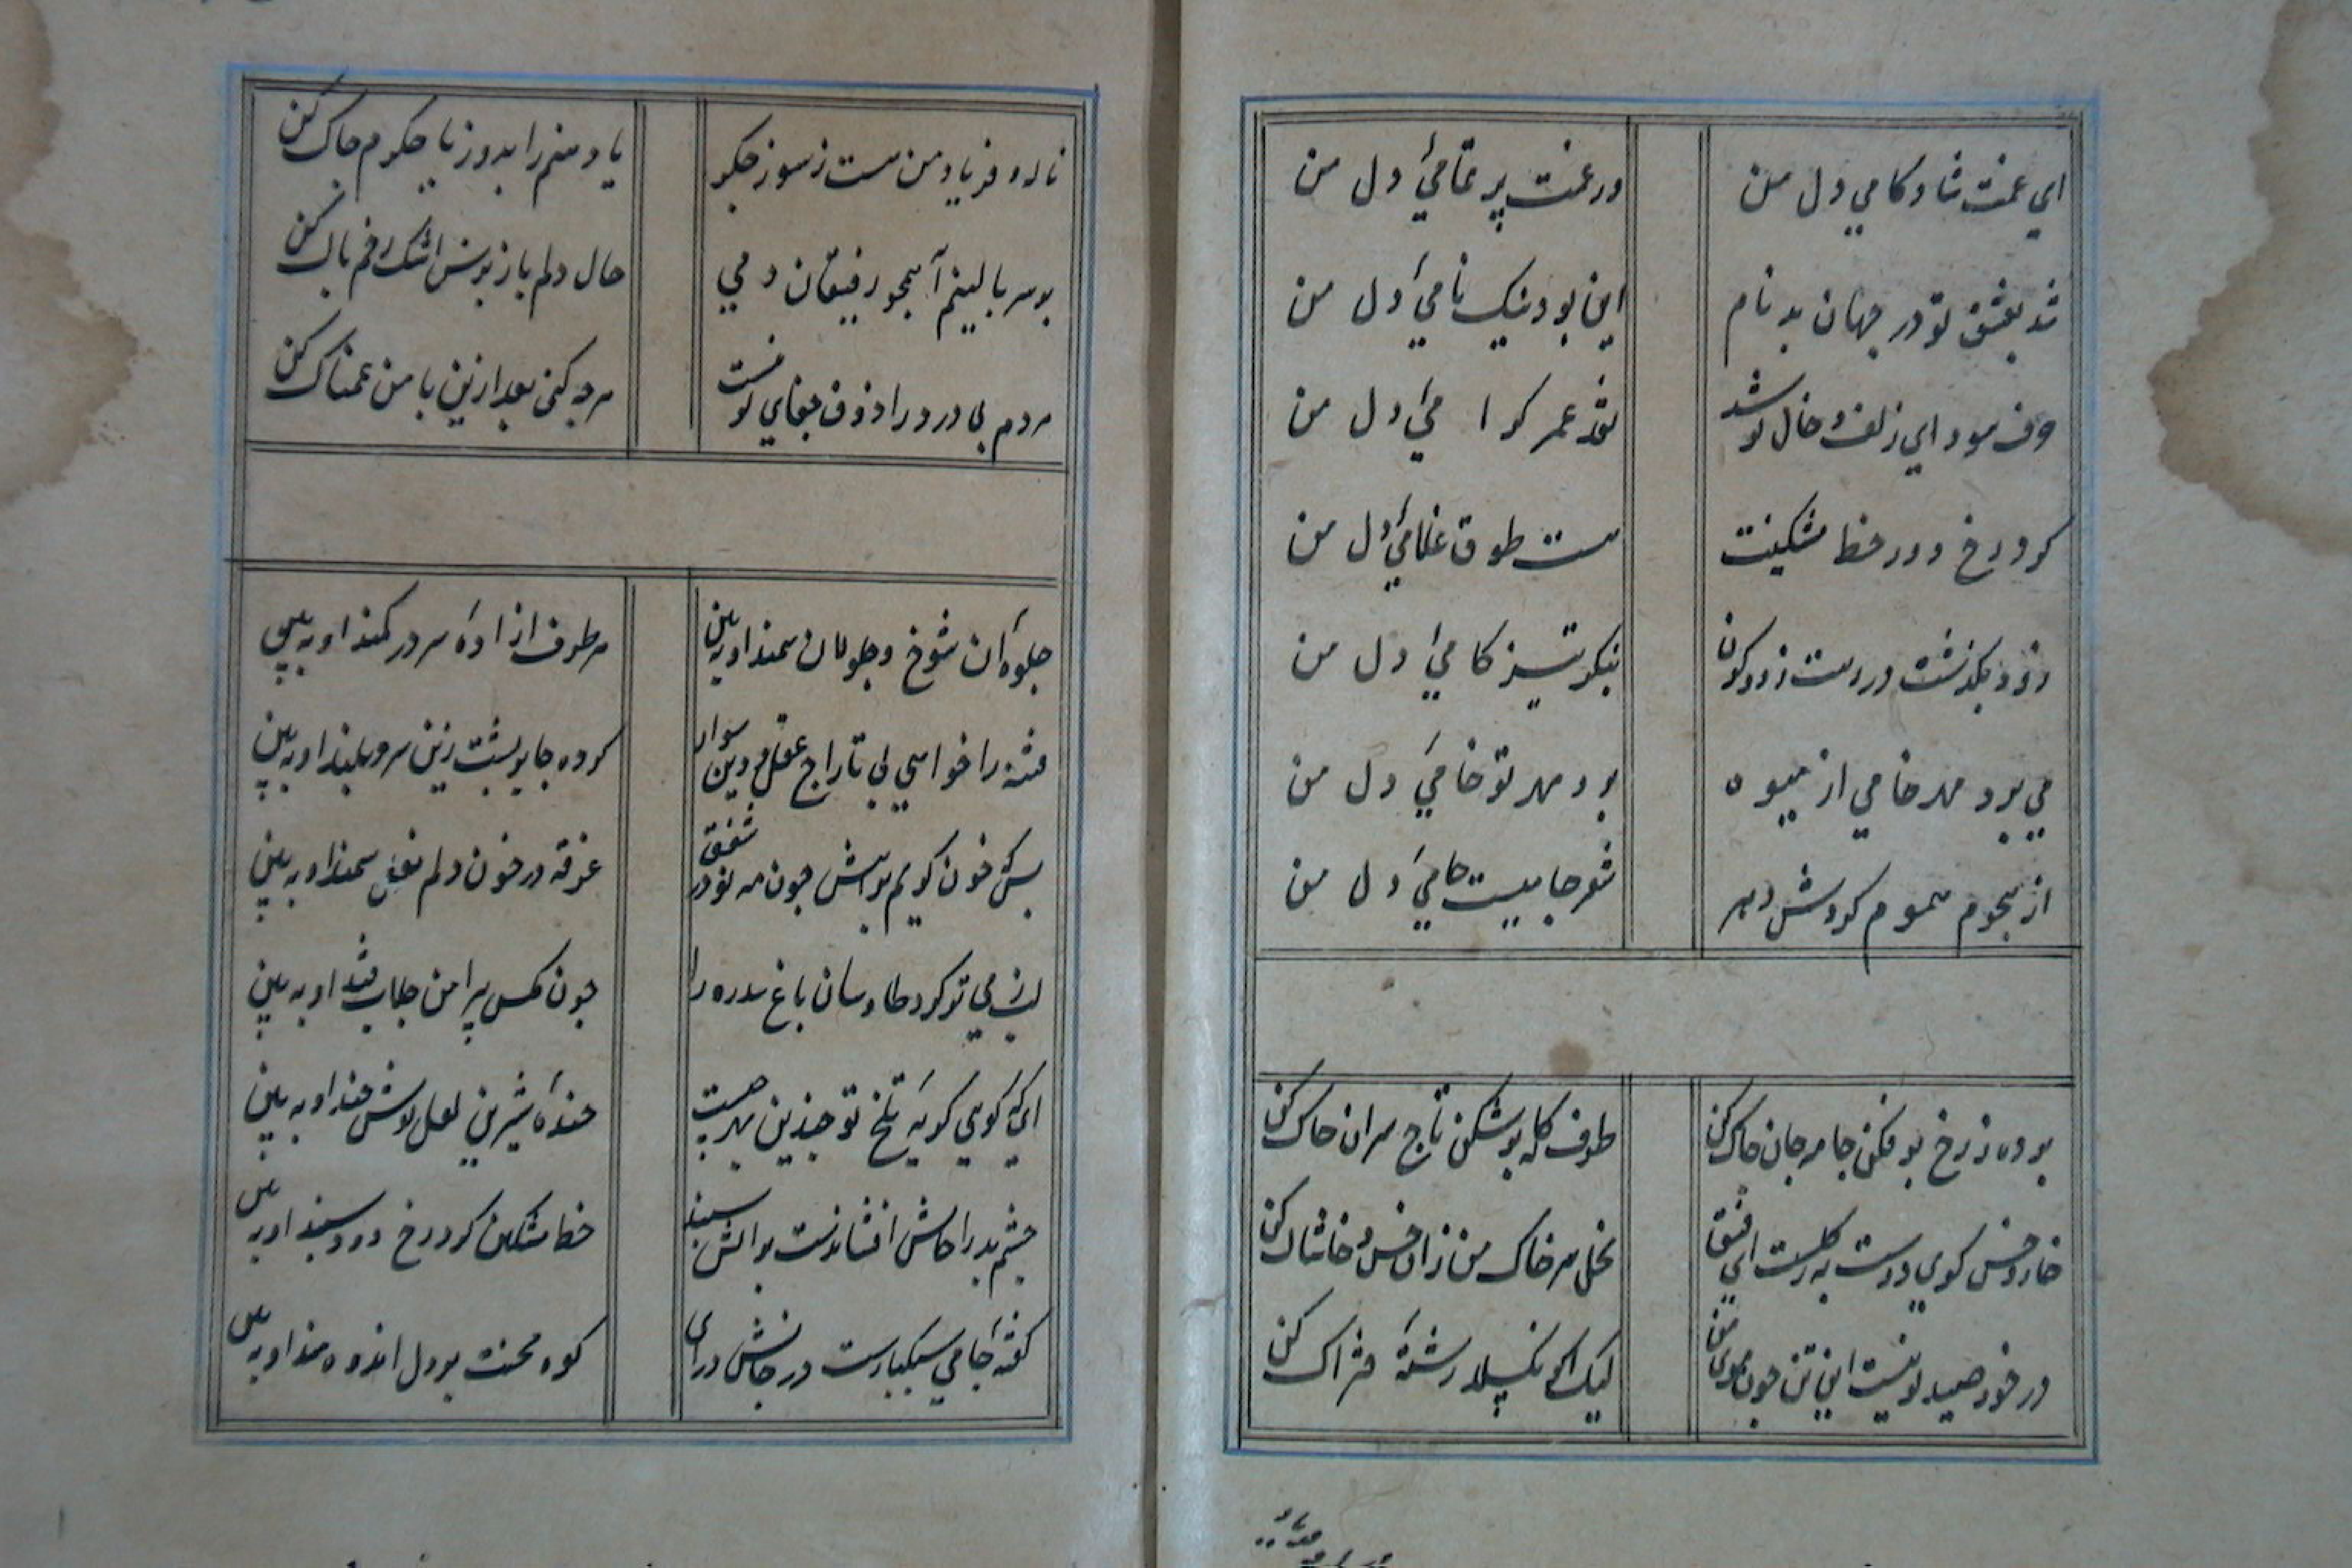 اي غمت شادكامي دل من
در غمت پر تمامئ دل من
شد بعشق تو در جهان بدنام
اين بود نيك نامئ دل من
صرف سوداي زلف و خال تو شد
نقد عمر كرامي دل من
كرد رخ دور خط مشكينت
هست طوق غلامئ دل من
زود بكذشت در دست زود كون
بنكر تيز كامئ دل من
مي برد مهر خامي از ميوه
برد مهر تو خامئ دل من
از هجوم هموم كردش دهر
شعر جاميست حامئ دل من
پرده ز رخ بر فكن جامه جان چاك كن
طرف كله بر شكن تاج سران خاك كن
خار و خس كوي دوست به ز كلست اي رفيق
نخل سر خاك من زان خس و خاشاك كن
در خور صيد تو نيست اين تن چون موي من
ليك اكر بكسلد رشتۀ فتراك كن
ناله و فرياد من هست ز سوز جكر
يا دهنم را بدوز يا جكرم چاك كن
بر سر بالينم آ همچو رفيقان دمي
حال دلم باز پرس اشك رخم پاك كن
مردم بي درد را ذوق جفاي تو نيست
هر چه كني بعد ازين با من غمناك كن
جلوۀ آن شوخ و جولان سمند او به بين
هر طرف ازادۀ سر در كمند او به بين
فتنه را خواهي پي تاراج عقل و دين سوار
كرده جا بر پشت زين سرو بلند او به بين
بس كه خون كريم براهش چون مه نو در شفق
غرقه در خون دلم نعل سمند او به بين
لب ز مي تو كرد طاوسان باغ سدره را
چون مكس پيرامن جلاب قند او به بين
اي كه كوي كريۀ تلخ تو چندين بهر چيست
خندۀ شيرين لعل نوش خند او به بين
چشم بد را خاش افشاندست بر اتش سپند
خط مشكين كرد رخ دود سپند او به بين
كفتۀ جامي سبكبارست در جانش در اي
كوه محنت بر دل اندوه مند او به بين